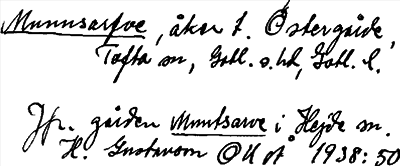 Munnsarfve, åker t. Östergårde,
Tofta sn, Gotl. s. hd, Gotl. l.
Jfr. gården Muntsarve i Hejde sn.
H. Gustavson OUoÅ 1938:50